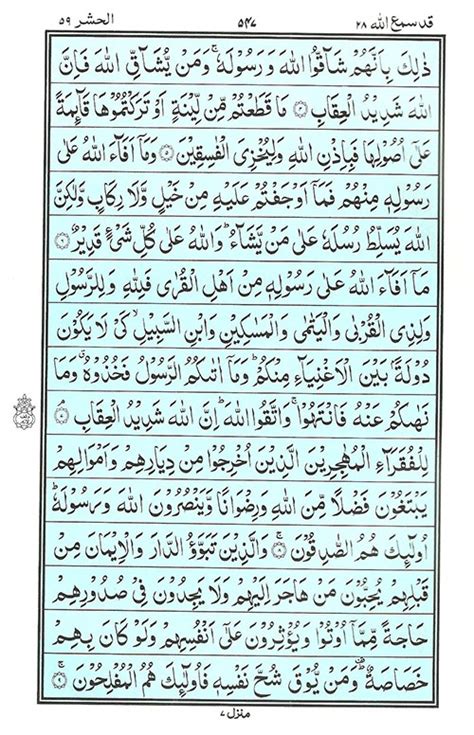 قد سمع الله ٢٨
٥٤٧
الحشر ٥٩
ذٰلِكَ بِاَنَّهُمْ شَآقُّوا اللّٰهَ وَرَسُوْلَهٗ ۚ وَمَنْ يُّشَآقِّ اللّٰهَ فَاِنَّ
اللّٰهَ شَدِيْدُ الْعِقَابِ ۝ مَا قَطَعْتُمْ مِّنْ لِّيْنَةٍ اَوْ تَرَكْتُمُوْهَا قَآئِمَةً
عَلٰٓى اُصُوْلِهَا فَبِاِذْنِ اللّٰهِ وَلِيُخْزِيَ الْفٰسِقِيْنَ ۝ وَمَآ اَفَآءَ اللّٰهُ عَلٰى
رَسُوْلِهٖ مِنْهُمْ فَمَآ اَوْجَفْتُمْ عَلَيْهِ مِنْ خَيْلٍ وَّلَا رِكَابٍ وَّلٰكِنَّ
اللّٰهَ يُسَلِّطُ رُسُلَهٗ عَلٰى مَنْ يَّشَآءُ ؕ وَاللّٰهُ عَلٰى كُلِّ شَيْءٍ قَدِيْرٌ ۝
مَآ اَفَآءَ اللّٰهُ عَلٰى رَسُوْلِهٖ مِنْ اَهْلِ الْقُرٰى فَلِلّٰهِ وَلِلرَّسُوْلِ
وَلِذِي الْقُرْبٰى وَالْيَتٰمٰى وَالْمَسٰكِيْنِ وَابْنِ السَّبِيْلِ ۙ كَيْ لَا يَكُوْنَ
دُوْلَةًۢ بَيْنَ الْاَغْنِيَآءِ مِنْكُمْ ؕ وَمَآ اٰتٰىكُمُ الرَّسُوْلُ فَخُذُوْهُ ۗ وَمَا
نَهٰىكُمْ عَنْهُ فَانْتَهُوْا ۚ وَاتَّقُوا اللّٰهَ ؕ اِنَّ اللّٰهَ شَدِيْدُ الْعِقَابِ ۝
لِلْفُقَرَآءِ الْمُهٰجِرِيْنَ الَّذِيْنَ اُخْرِجُوْا مِنْ دِيَارِهِمْ وَاَمْوَالِهِمْ
يَبْتَغُوْنَ فَضْلًا مِّنَ اللّٰهِ وَرِضْوَانًا وَّيَنْصُرُوْنَ اللّٰهَ وَرَسُوْلَهٗ ؕ
اُولٰٓئِكَ هُمُ الصّٰدِقُوْنَ ۝ وَالَّذِيْنَ تَبَوَّؤُ الدَّارَ وَالْاِيْمَانَ مِنْ
قَبْلِهِمْ يُحِبُّوْنَ مَنْ هَاجَرَ اِلَيْهِمْ وَلَا يَجِدُوْنَ فِيْ صُدُوْرِهِمْ
حَاجَةً مِّمَّآ اُوْتُوْا وَيُؤْثِرُوْنَ عَلٰٓى اَنْفُسِهِمْ وَلَوْ كَانَ بِهِمْ
خَصَاصَةٌ ؕ وَمَنْ يُّوْقَ شُحَّ نَفْسِهٖ فَاُولٰٓئِكَ هُمُ الْمُفْلِحُوْنَ ۝
منزل ٧